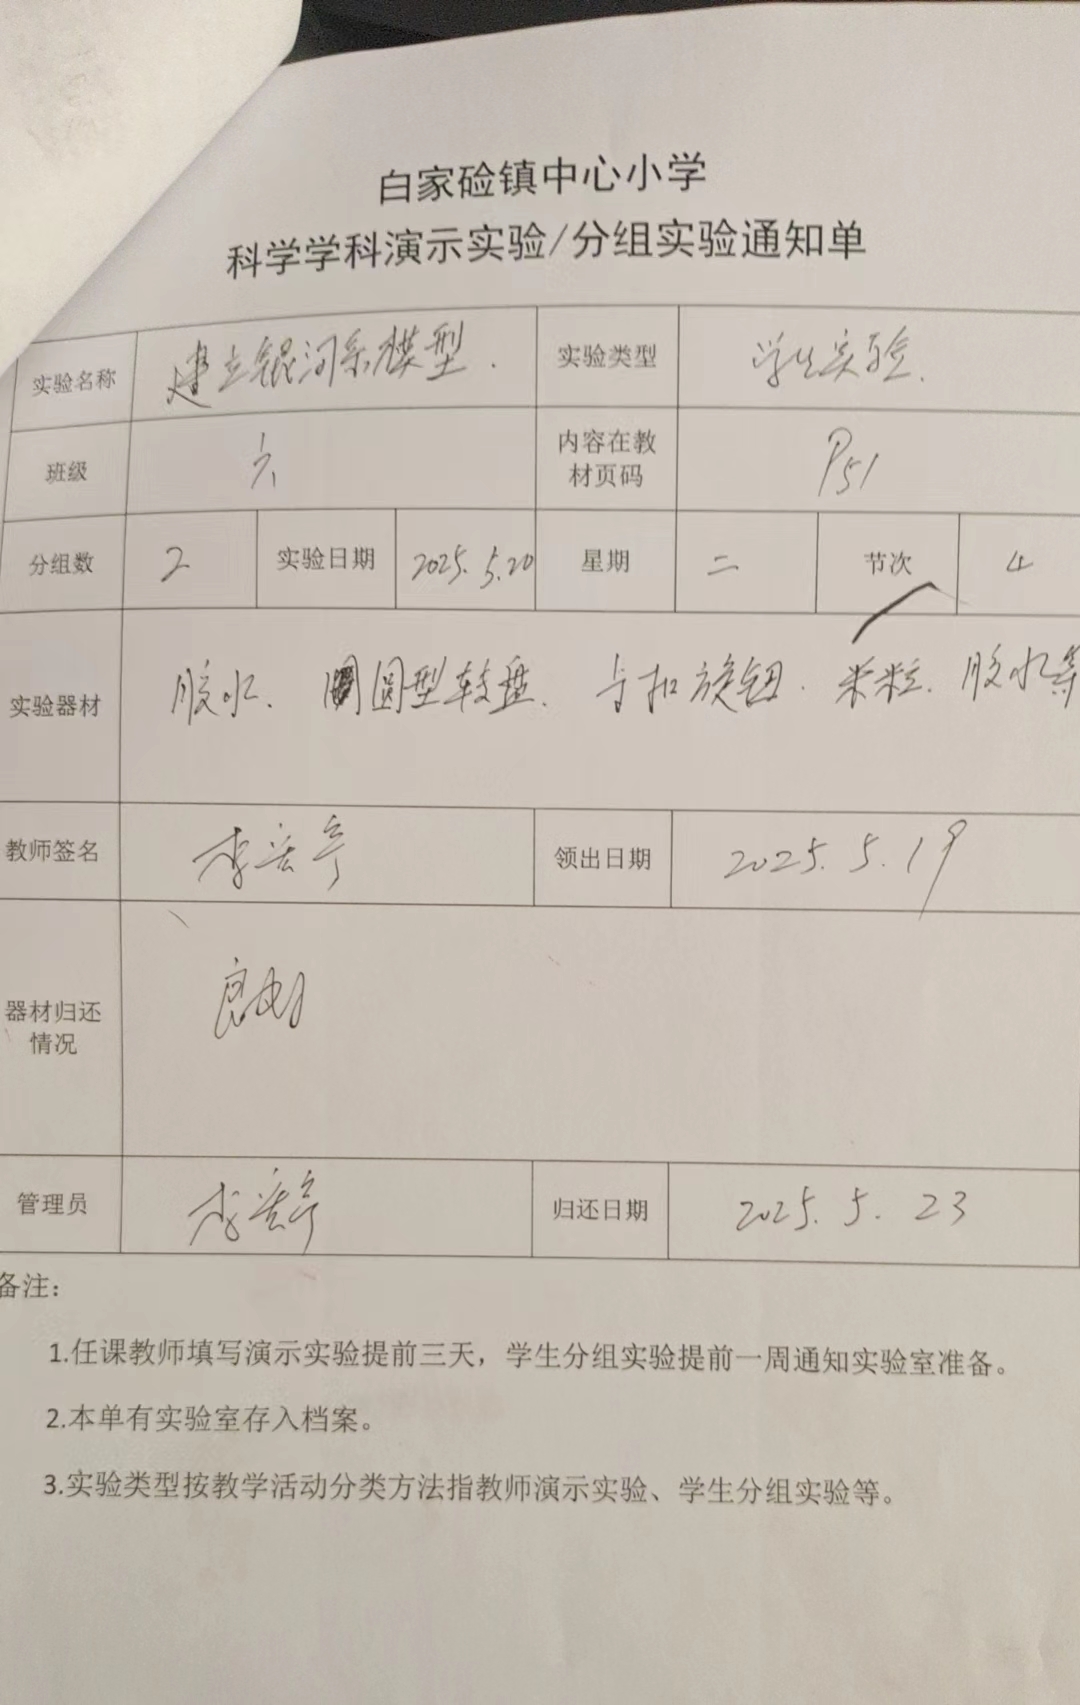 白家硷镇中心小学
科学学科演示实验/分组实验通知单
实验名称 建立银河系模型. 实验类型 学生实验.
班级 六 内容在教材页码 P51
分组数 2 实验日期 2025.5.20 星期 二 节次 4
实验器材 胶水、圆型转盘、与扣旋钮.米粒.胶水等
教师签名 李 领出日期 2025.5.19
器材归还情况 良好
管理员 李 归还日期 2025.5.23
备注:
1.任课教师填写演示实验提前三天，学生分组实验提前一周通知实验室准备。
2.本单有实验室存入档案。
3.实验类型按教学活动分类方法指教师演示实验、学生分组实验等。